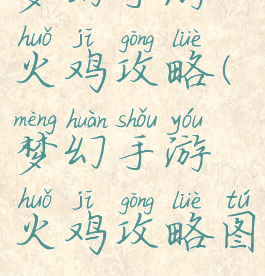 huǒ jī gōng lüè
火鸡攻略(
mèng huàn shǒu yóu
梦幻手游
huǒ jī gōng lüè tú
火鸡攻略图